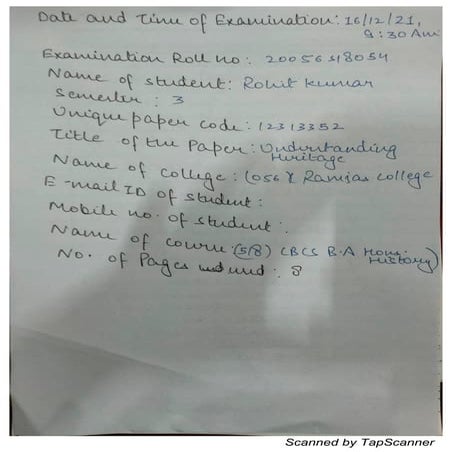 Date and Time of Examination: 16/12/21,
9:30 Am
Examination Roll no: 20056518054
Name of student: Rohit Kumar
Semester : 3
Unique paper code: 12313352
Title of the Paper: Understanding
Heritage
Name of college: (056) Ramjas College
E-mail ID of student:
Mobile no. of student:
Name of course: (518) CBCS B.A Hons.
History)
No. of Pages used: 8
Scanned by TapScanner